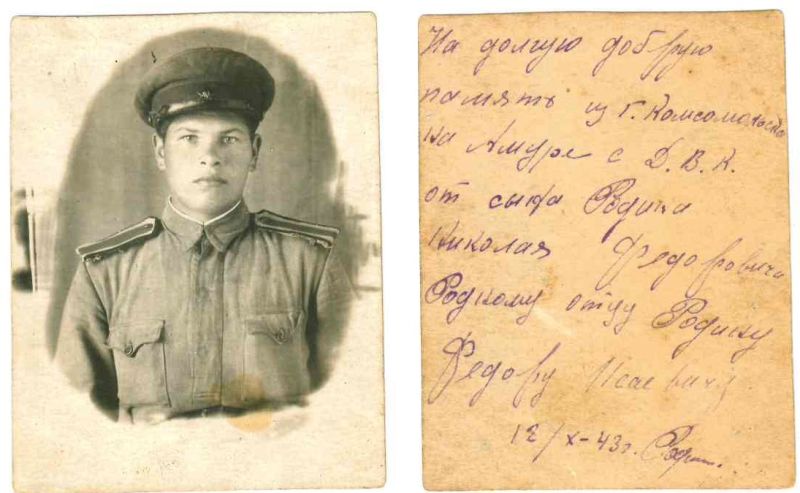 На долгую добрую
память из г. Комсомольска
на Амуре с Д.В.К.
от сына Родина
Николая Федоровича
Родному отцу Родину
Федору Исаевичу
12/X-43г. Родин.